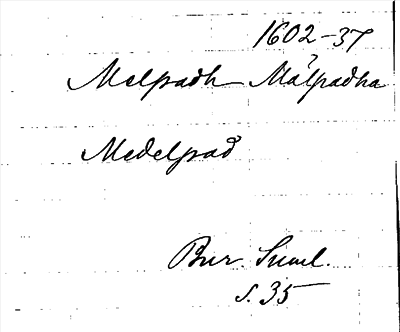 1602-37
Melpadh Målpadha
Medelpad
Bur. Suml.
s. 35